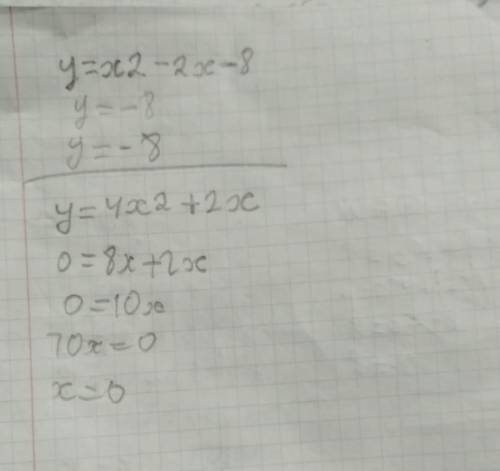 y=x2-2x-8
y=-8
y=-8
y=4x2+2x
0=8x+2x
0=10x
10x=0
x=0